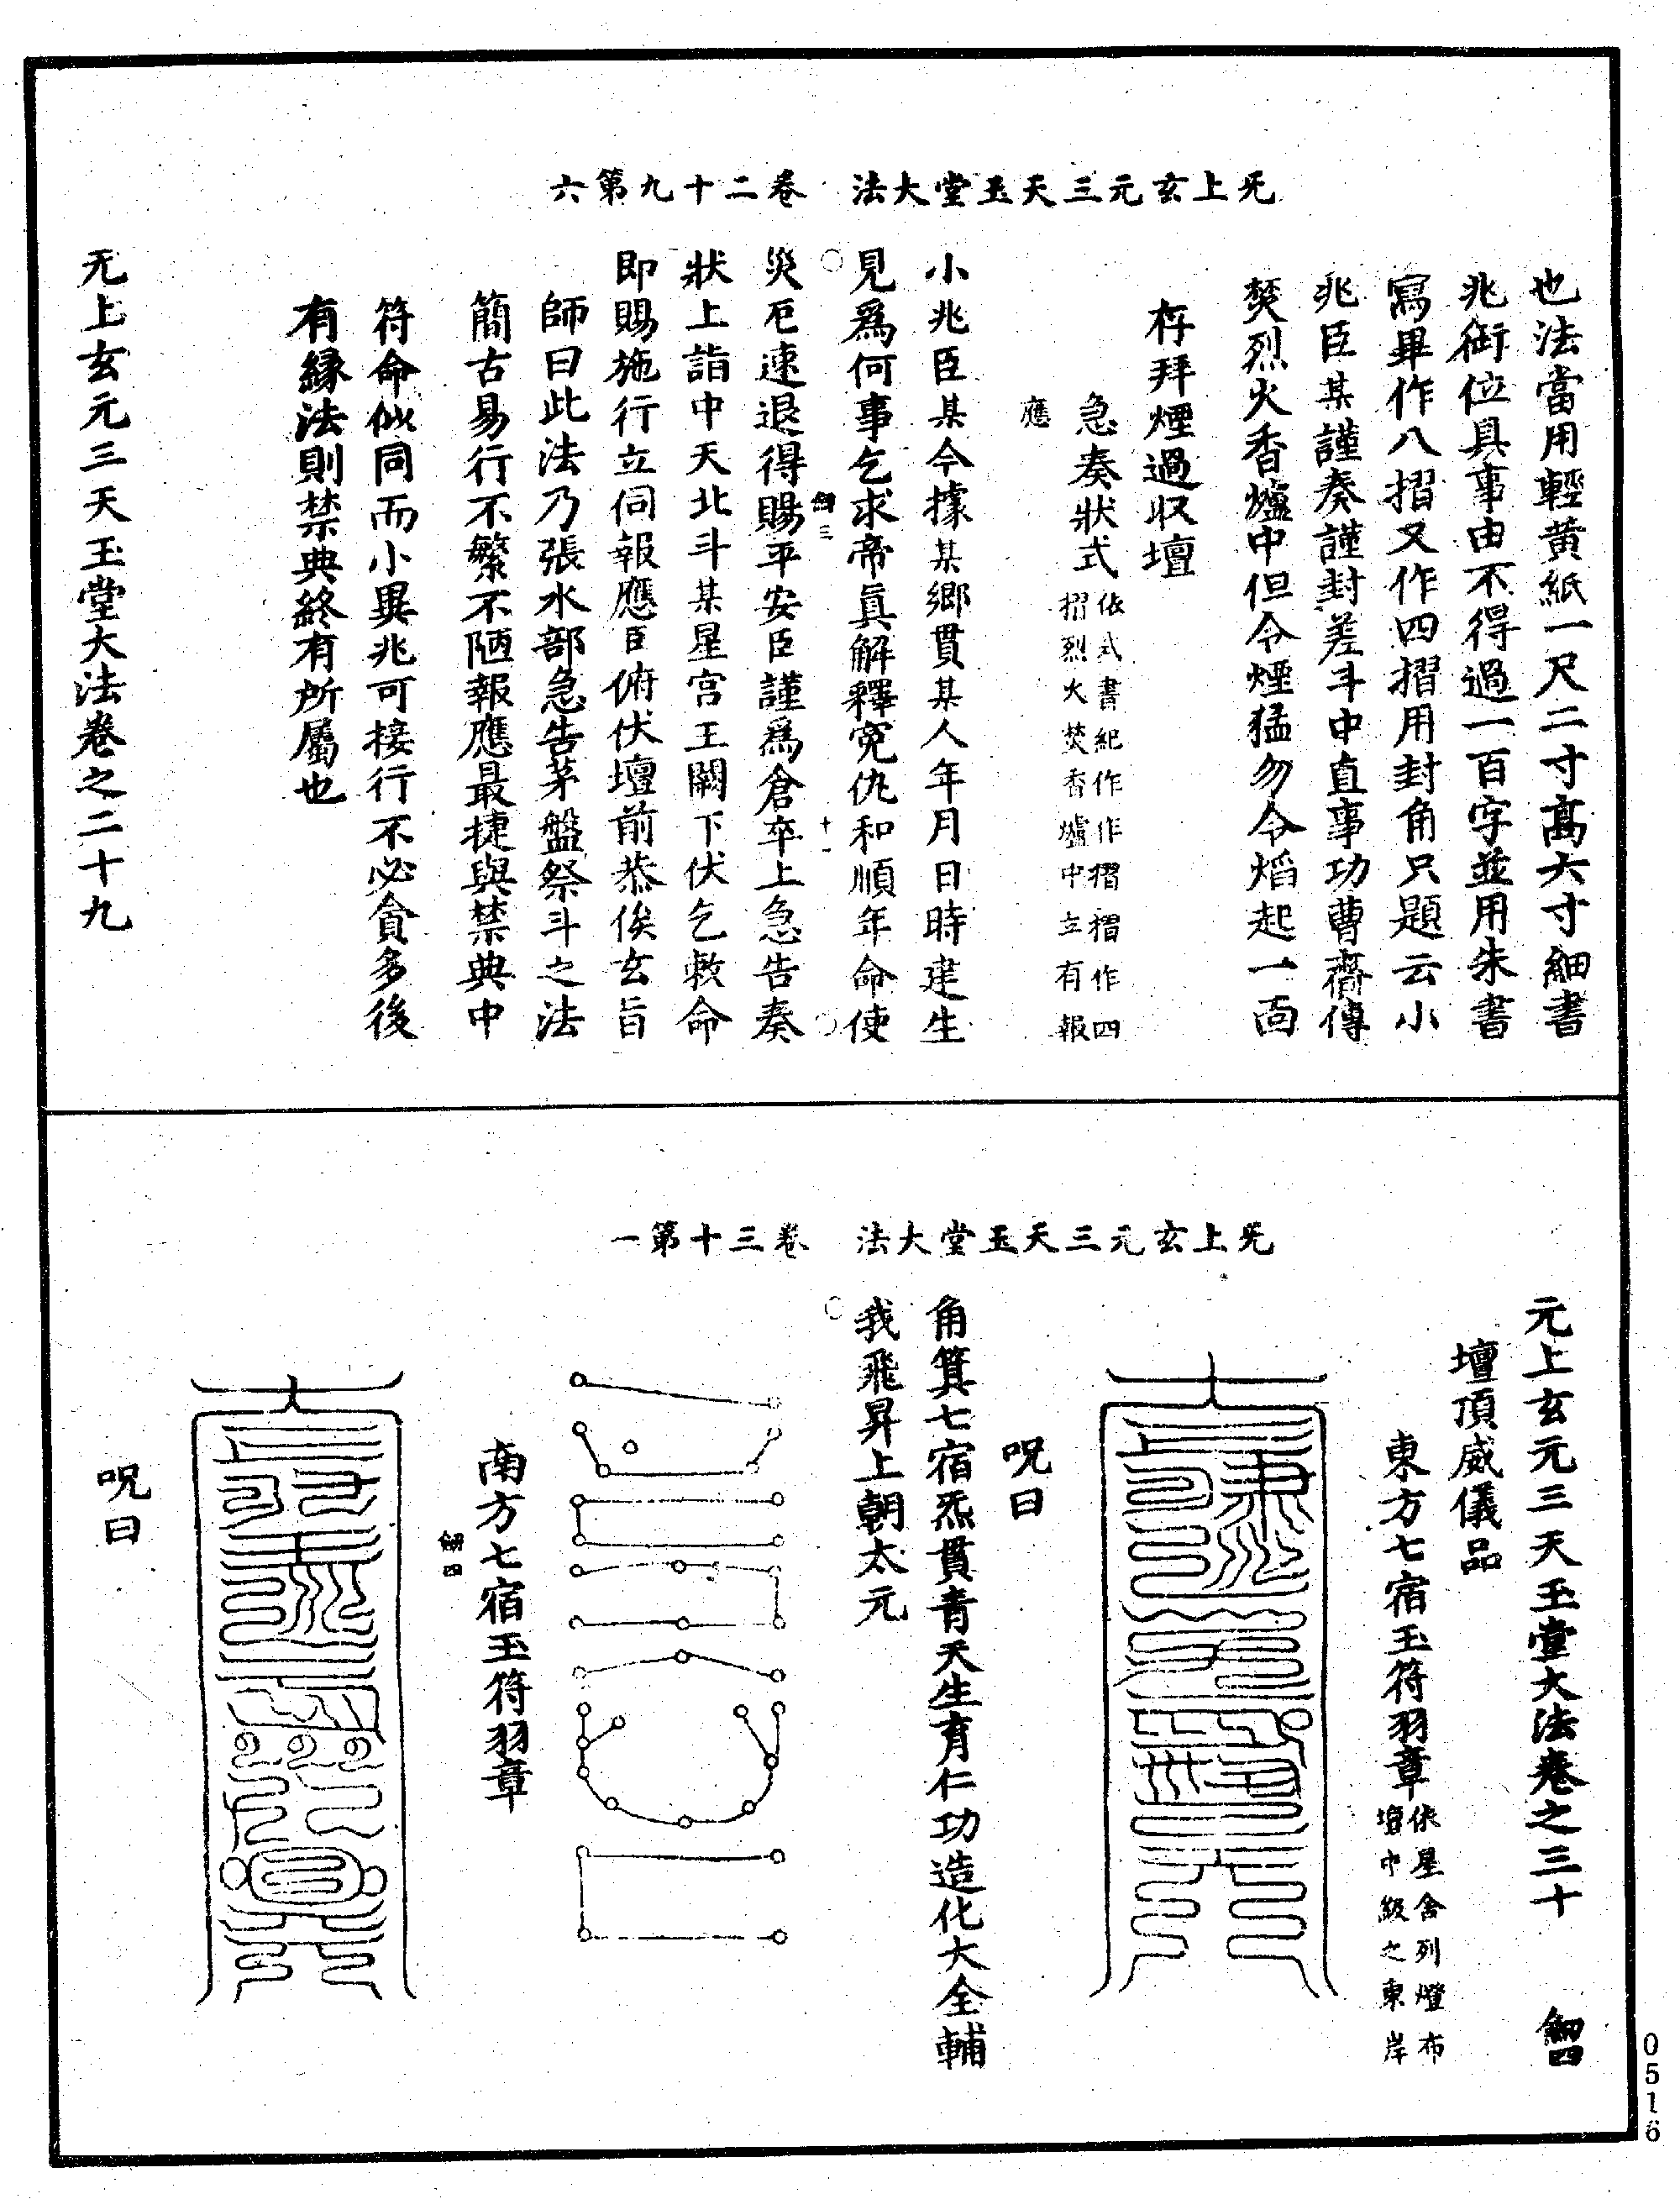 无上玄元三天玉堂大法　卷二十九第六
也法當用輕黃紙一尺二寸高六寸細書
兆銜位具事由不得過一百字並用朱書
寫畢作八摺又作四摺用封角只題云小
兆臣某謹奏謹封差斗中直事功曹齎傳
焚烈火香爐中但令煙猛勿令焰起一面
存拜煙過収壇
急奏狀式依式書紀作作摺摺作四
摺烈火焚香爐中立有報
應
小兆臣某今據某鄉貫某人年月日時建生
見爲何事乞求帝眞解釋寃仇和順年命使
劒三　十一
災厄速退得賜平安臣謹爲倉卒上急告奏
狀上詣中天北斗某星宮王闕下伏乞救命
即賜施行立伺報應臣俯伏壇前恭俟玄旨
師曰此法乃張水部急告茅盤祭斗之法
簡古易行不繁不陋報應最捷與禁典中
符命似同而小異兆可接行不必貪多後
有緣法則禁典終有所屬也
无上玄元三天玉堂大法卷之二十九
无上玄元三天玉堂大法　卷三十第一
元上玄元三天玉堂大法卷之三十　劒四
壇頂威儀品
東方七宿玉符羽章依星舍列燈布
壇中級之東岸
呪曰
角箕七宿炁貫青天生育仁功造化大全輔
我飛昇上朝太元
南方七宿玉符羽章
劒四
呪曰
0516